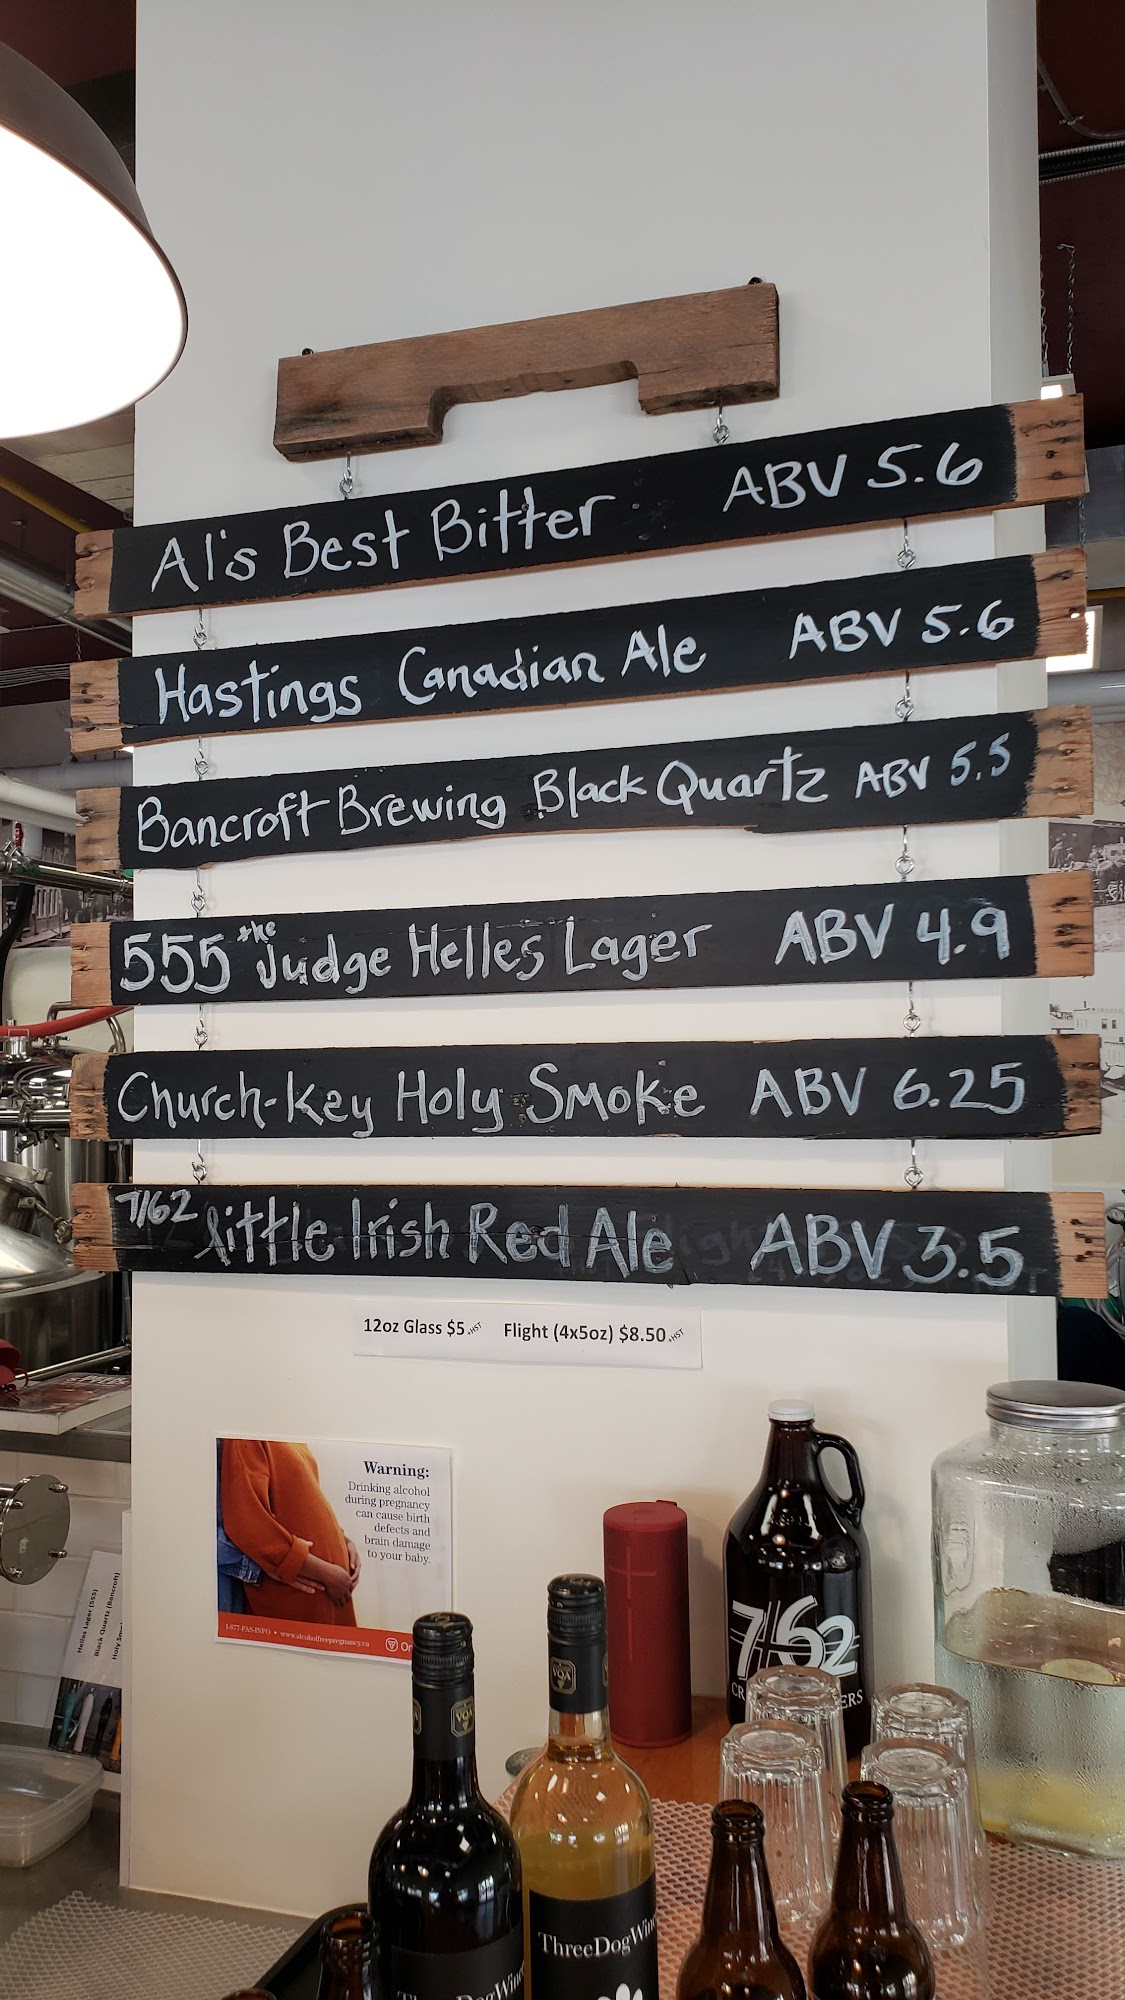 Al's Best Bitter ABV 5.6
Hastings Canadian Ale ABV 5.6
Bancroft Brewing Black Quartz ABV 5.5
555 the Judge Helles Lager ABV 4.9
Church-Key Holy Smoke ABV 6.25
7/62 Little Irish Red Ale ABV 3.5
12oz Glass $5 +HST Flight (4x5oz) $8.50 +HST
Warning:
Drinking alcohol
during pregnancy
can cause birth
defects and
brain damage
to your baby.
1-877-FAS-INFO • www.alcoholfreepregnancy.ca
Helles Lager (555)
Black Quartz (Bancroft)
7/62
VQA
VQA
ThreeDogWine
ThreeDogWine